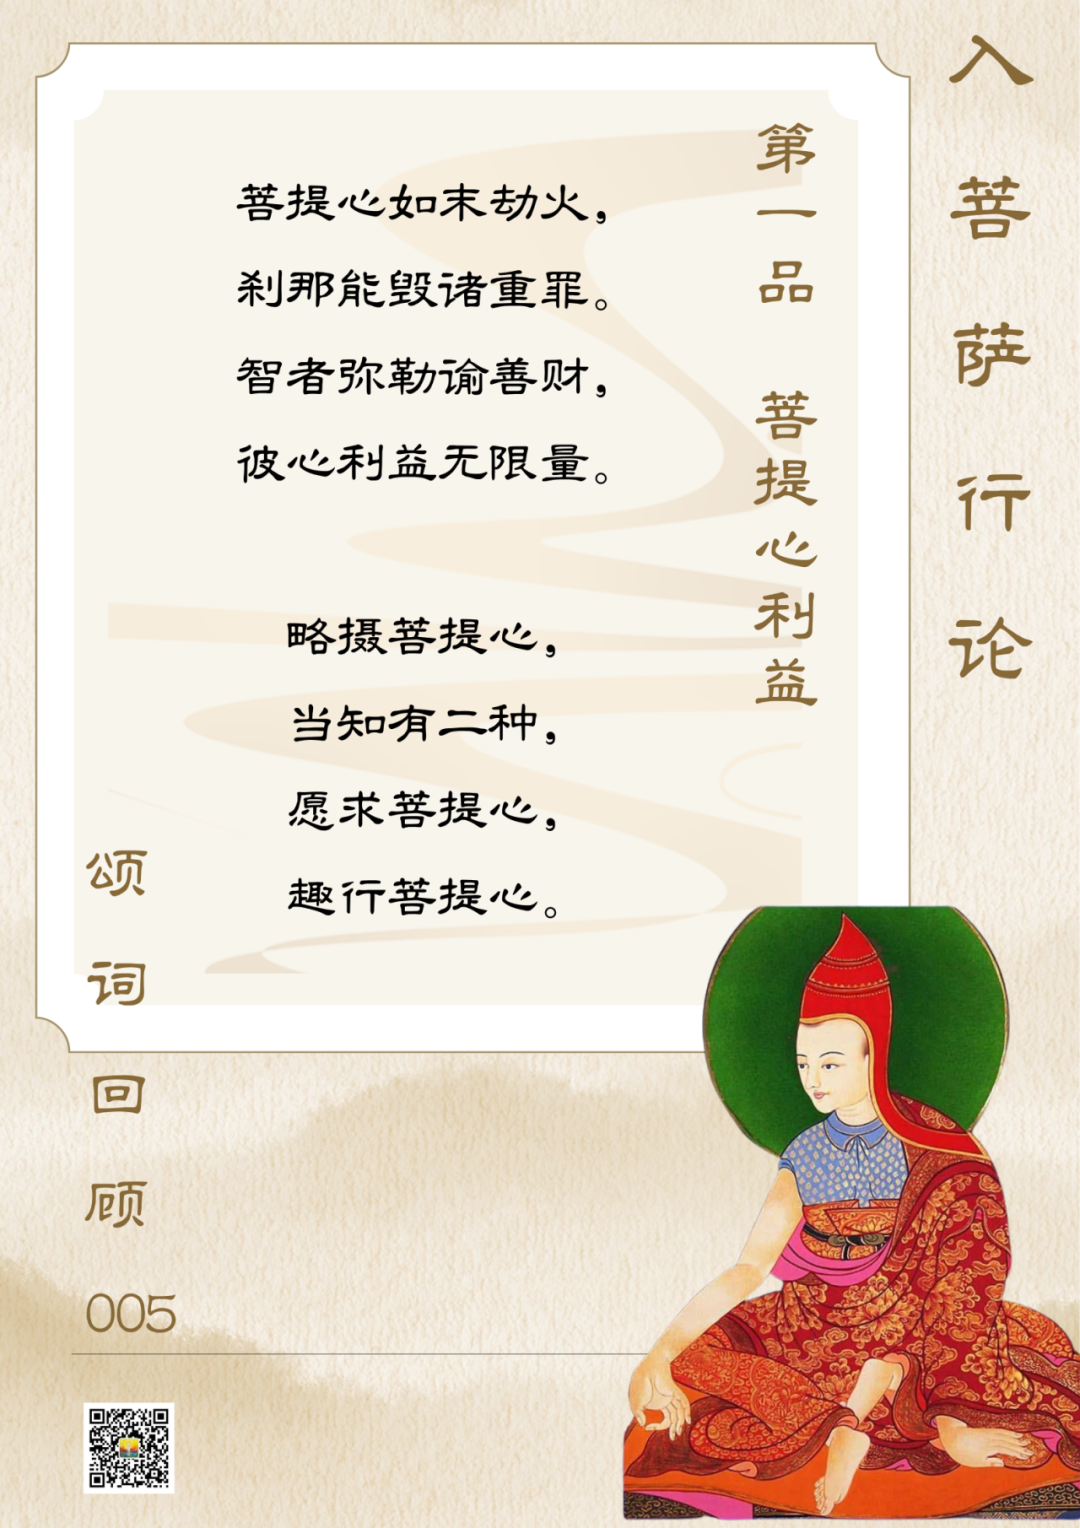 入菩萨行论
第一品 菩提心利益
菩提心如末劫火，
刹那能毁诸重罪。
智者弥勒谕善财，
彼心利益无限量。
略摄菩提心，
当知有二种，
愿求菩提心，
趣行菩提心。
颂词回顾
005